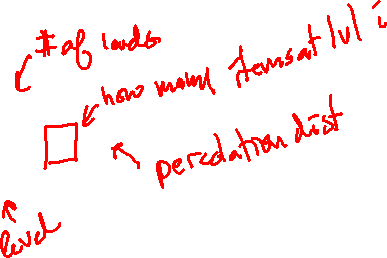 # of loads
how many items at lvl i
percolation dist
level